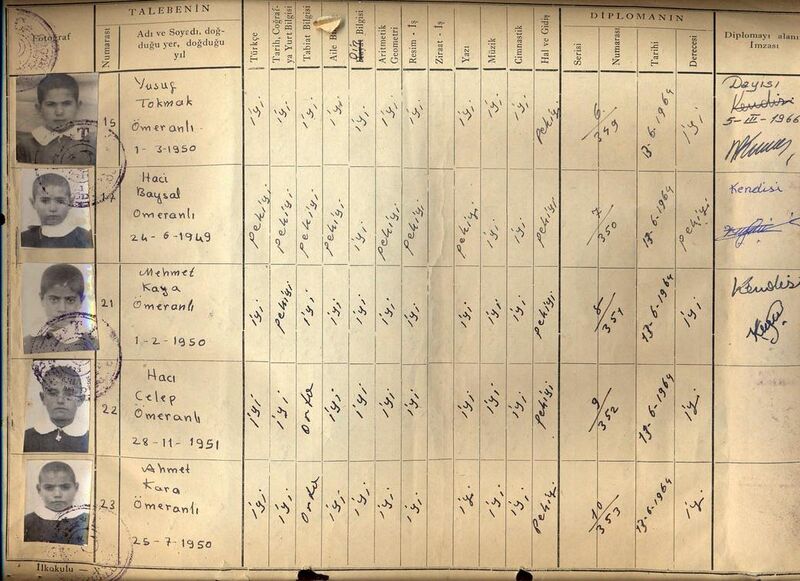 TALEBENİN
DİPLOMANIN
Fotoğraf
Numarası
Adı ve Soyadı, doğ-
duğu yer, doğduğu
yıl
Türkçe
Tarih, Coğraf-
ya Yurt Bilgisi
Tabiat Bilgisi
Aile
Din
Bilgisi
Aritmetik
Geometri
Resim - İş
Ziraat - İş
Yazı
Müzik
Cimnastik
Hal ve Gidiş
Serisi
Numarası
Tarihi
Derecesi
Diplomayı alanı
İmzası
15
Yusuf
Tokmak
Ömeranlı
1- 3-1950
iyi iyi iyi iyi iyi iyi iyi iyi iyi iyi pekiyi
6/349
13-6-1964
iyi
Dayısı
Kendisi
5-III-1966
17
Haci
Baysal
Ömeranlı
24-6-1949
pekiyi pekiyi pekiyi pekiyi iyi pekiyi pekiyi pekiyi iyi iyi pekiyi
7/350
13-6-1964
pekiyi
Kendisi
21
Mehmet
Kaya
Ömeranlı
1-2-1950
iyi pekiyi iyi iyi iyi iyi iyi iyi iyi iyi pekiyi
8/351
13-6-1964
iyi
Kendisi
22
Hacı
Celep
Ömeranlı
28-11-1951
iyi iyi orta iyi iyi iyi iyi iyi iyi iyi pekiyi
9/352
13-6-1964
iyi
23
Ahmet
Kara
Ömeranlı
25-7-1950
iyi iyi orta iyi iyi iyi iyi iyi iyi iyi pekiyi
10/353
13-6-1964
iyi
İlkokulu